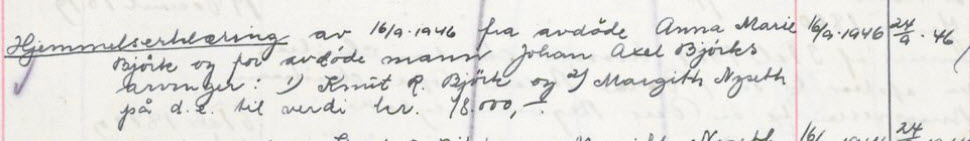 Hjemmelserklæring av 16/9-1946 fra avdøde Anna Marie 16/9-1946 24/9-46
Björk og for avdøde mann Johan Axel Björks
arvinger: 1) Knut R. Björk og 2) Margith Nyseth
på d.e. til verdi kr. 18.000,-.